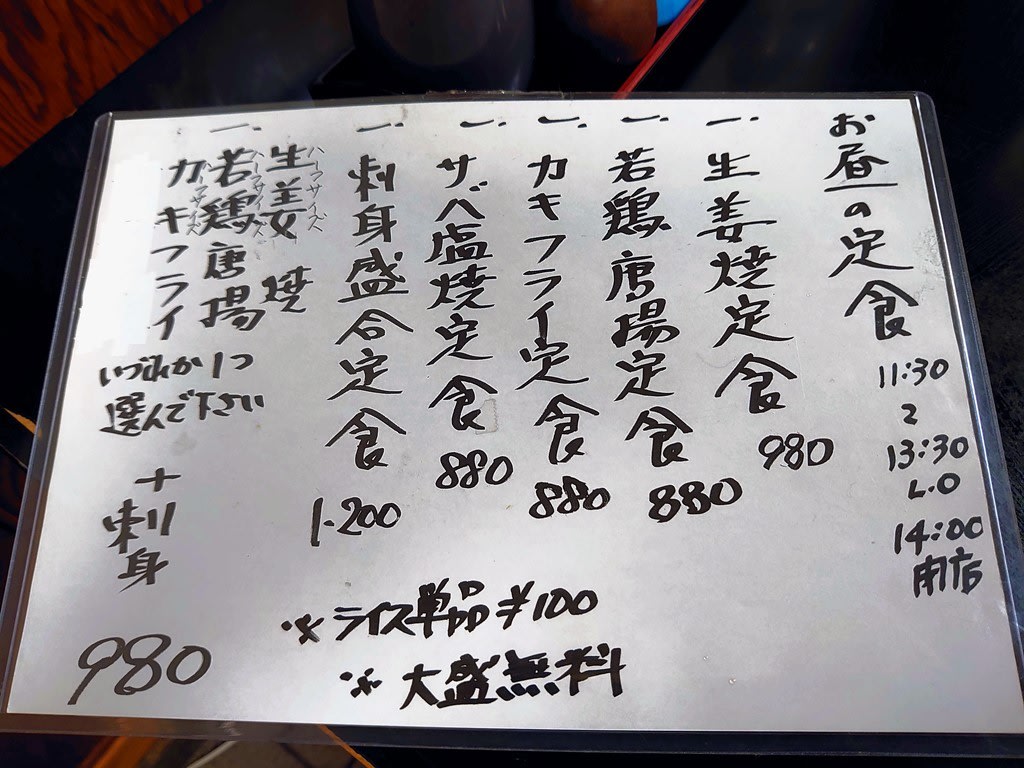 お昼の定食
11:30
〜
13:30
L.O
14:00
閉店
一. 生姜焼定食 980
一. 若鶏唐揚定食 880
一. カキフライ定食 880
一. サバ塩焼定食 880
一. 刺身盛合定食 1.200
一. 生姜焼 ハーフサイズ
若鶏唐揚 ハーフサイズ
カキフライ ハーフサイズ
いづれか1つ
選んで下さい
+刺身
980
※ ライス単品 ¥100
※ 大盛無料